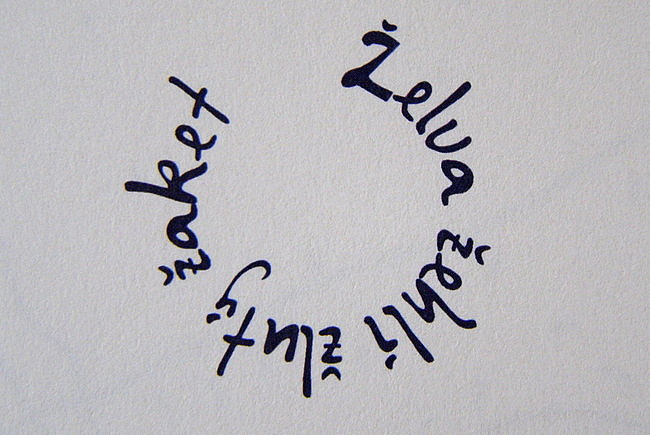 Želva žehlí žlutý žaket